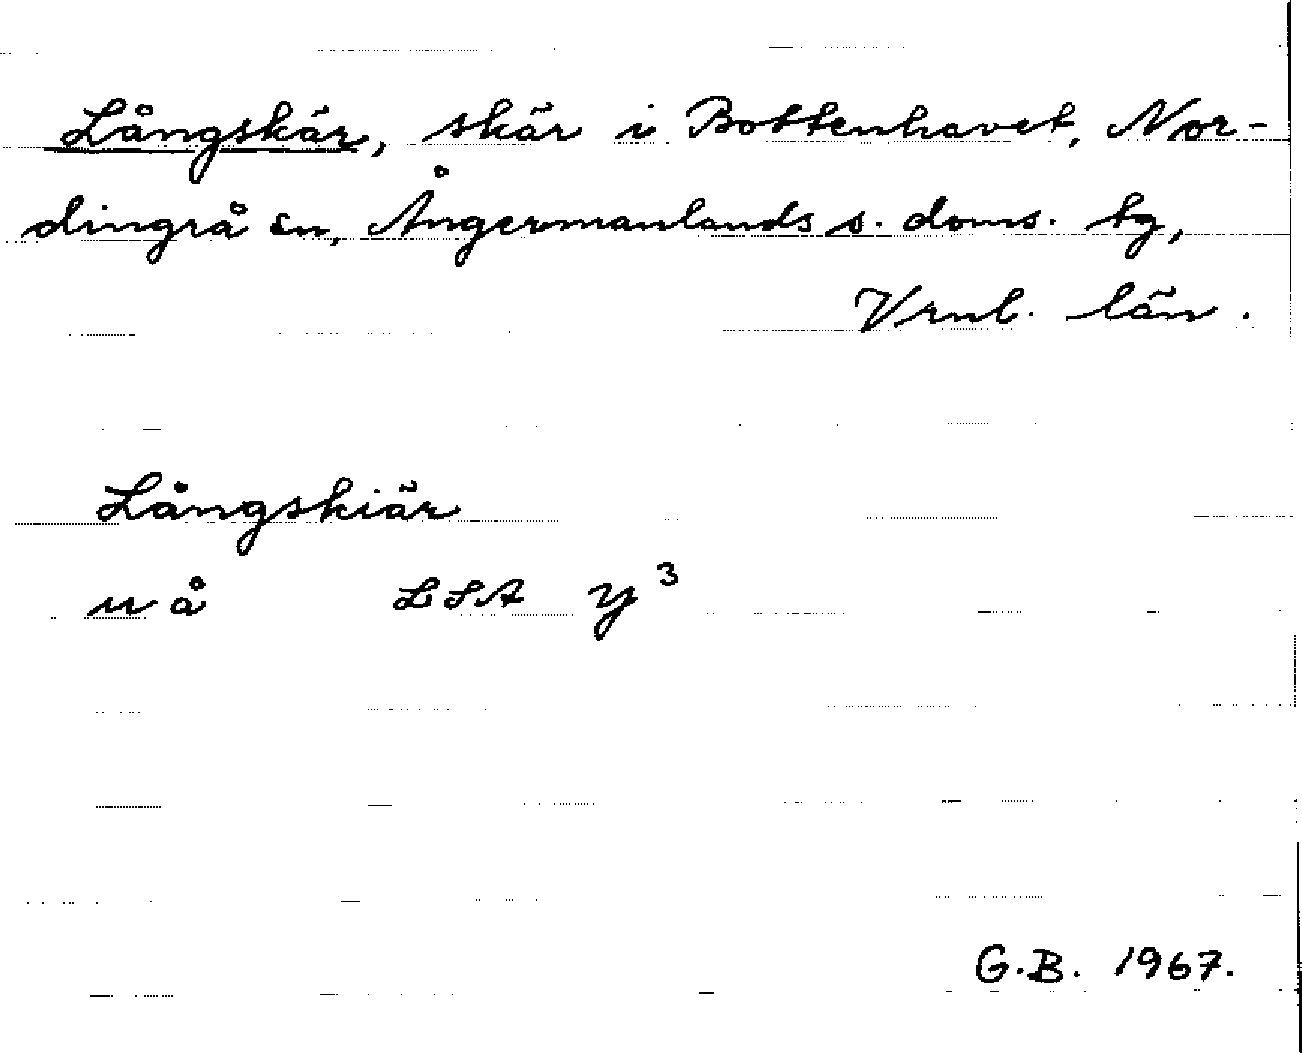 Långskär, skär i Bottenhavet, Nor-
dingrå sn, Ångermanlands s. doms. tg,
Vrnl. län.
Långskiär
u å LSA Y³
G.B. 1967.